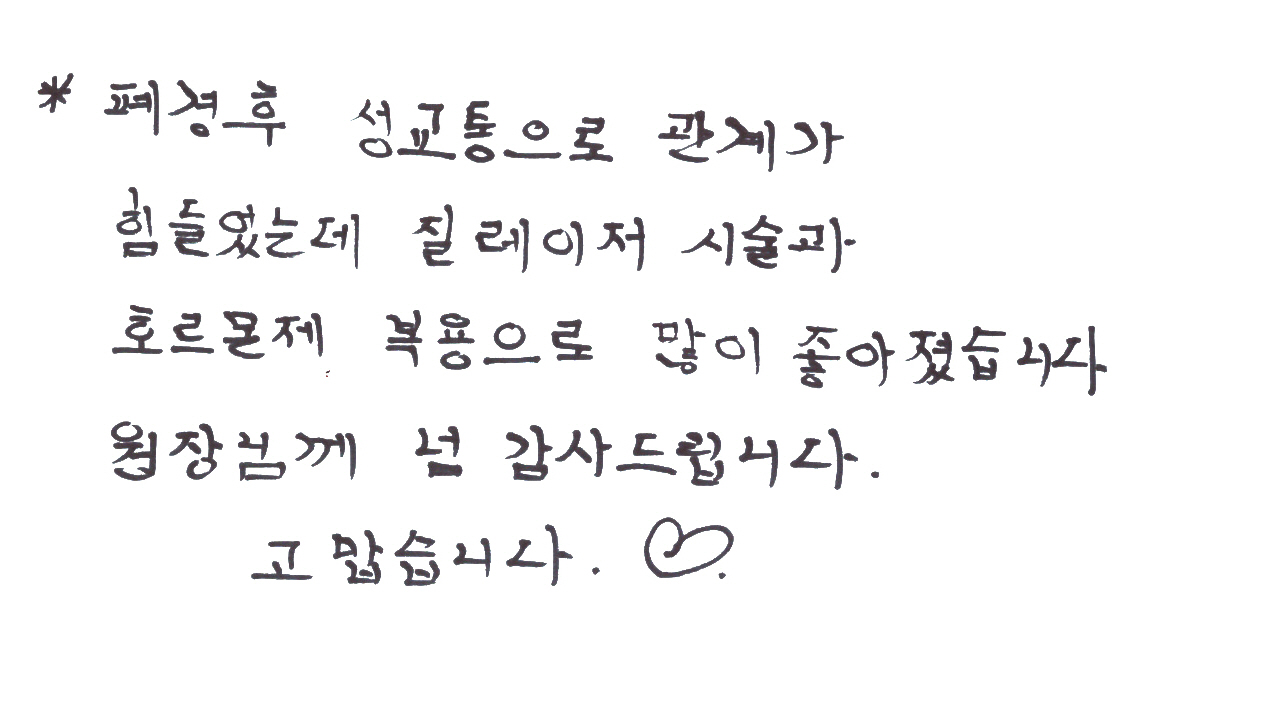 * 폐경후 성교통으로 관계가
힘들었는데 질 레이저 시술과
호르몬제 복용으로 많이 좋아졌습니다
원장님께 넘 감사드립니다.
고맙습니다. ♡.